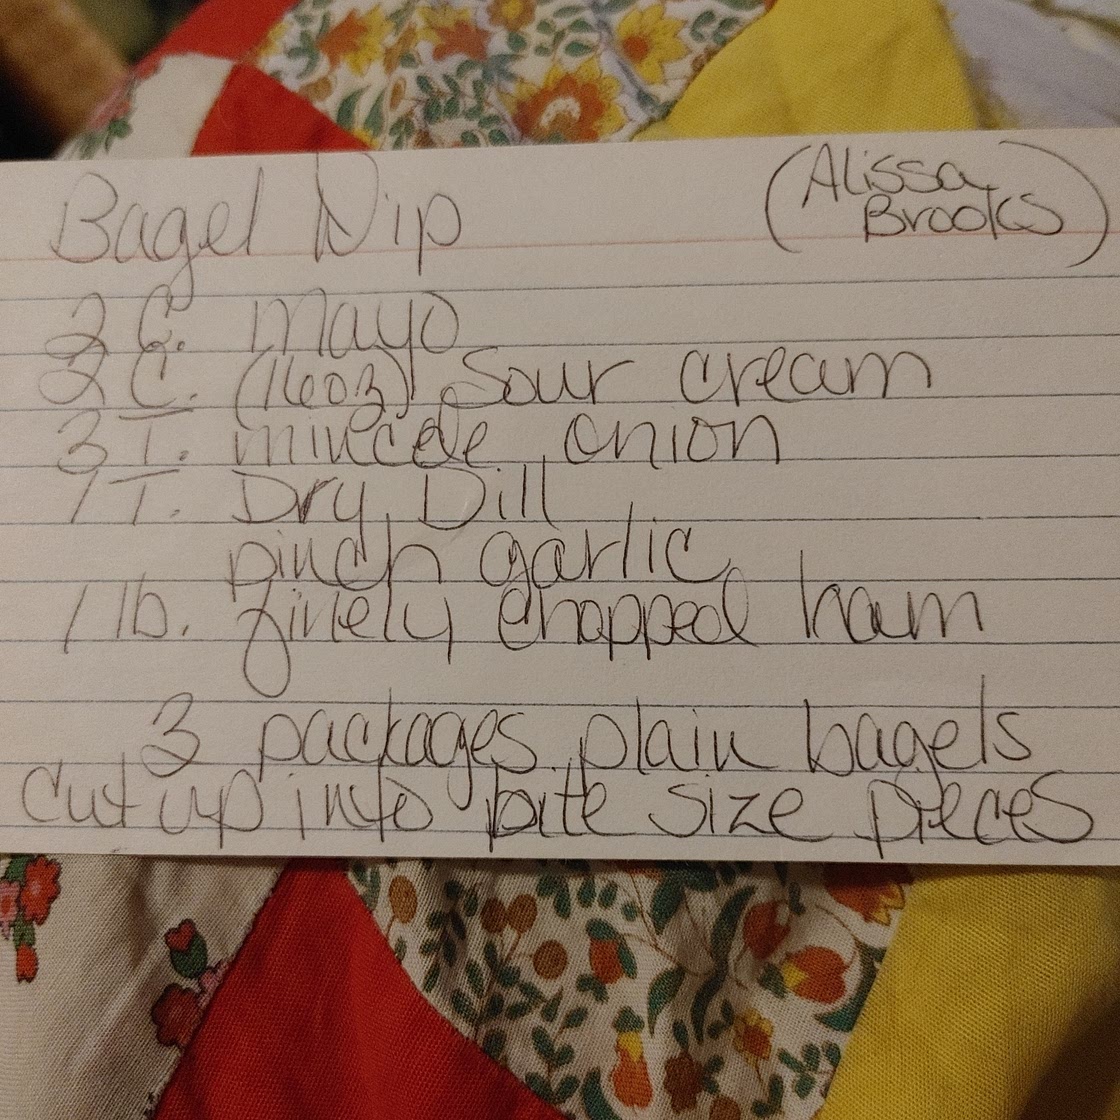 Bagel Dip (Alissa Brooks)
2 C. mayo
2 C. (16oz) Sour cream
3 T. mincede onion
1 T. Dry Dill
pinch garlic
1 lb. finely chopped ham
3 packages plain bagels
cut up into bite size pieces